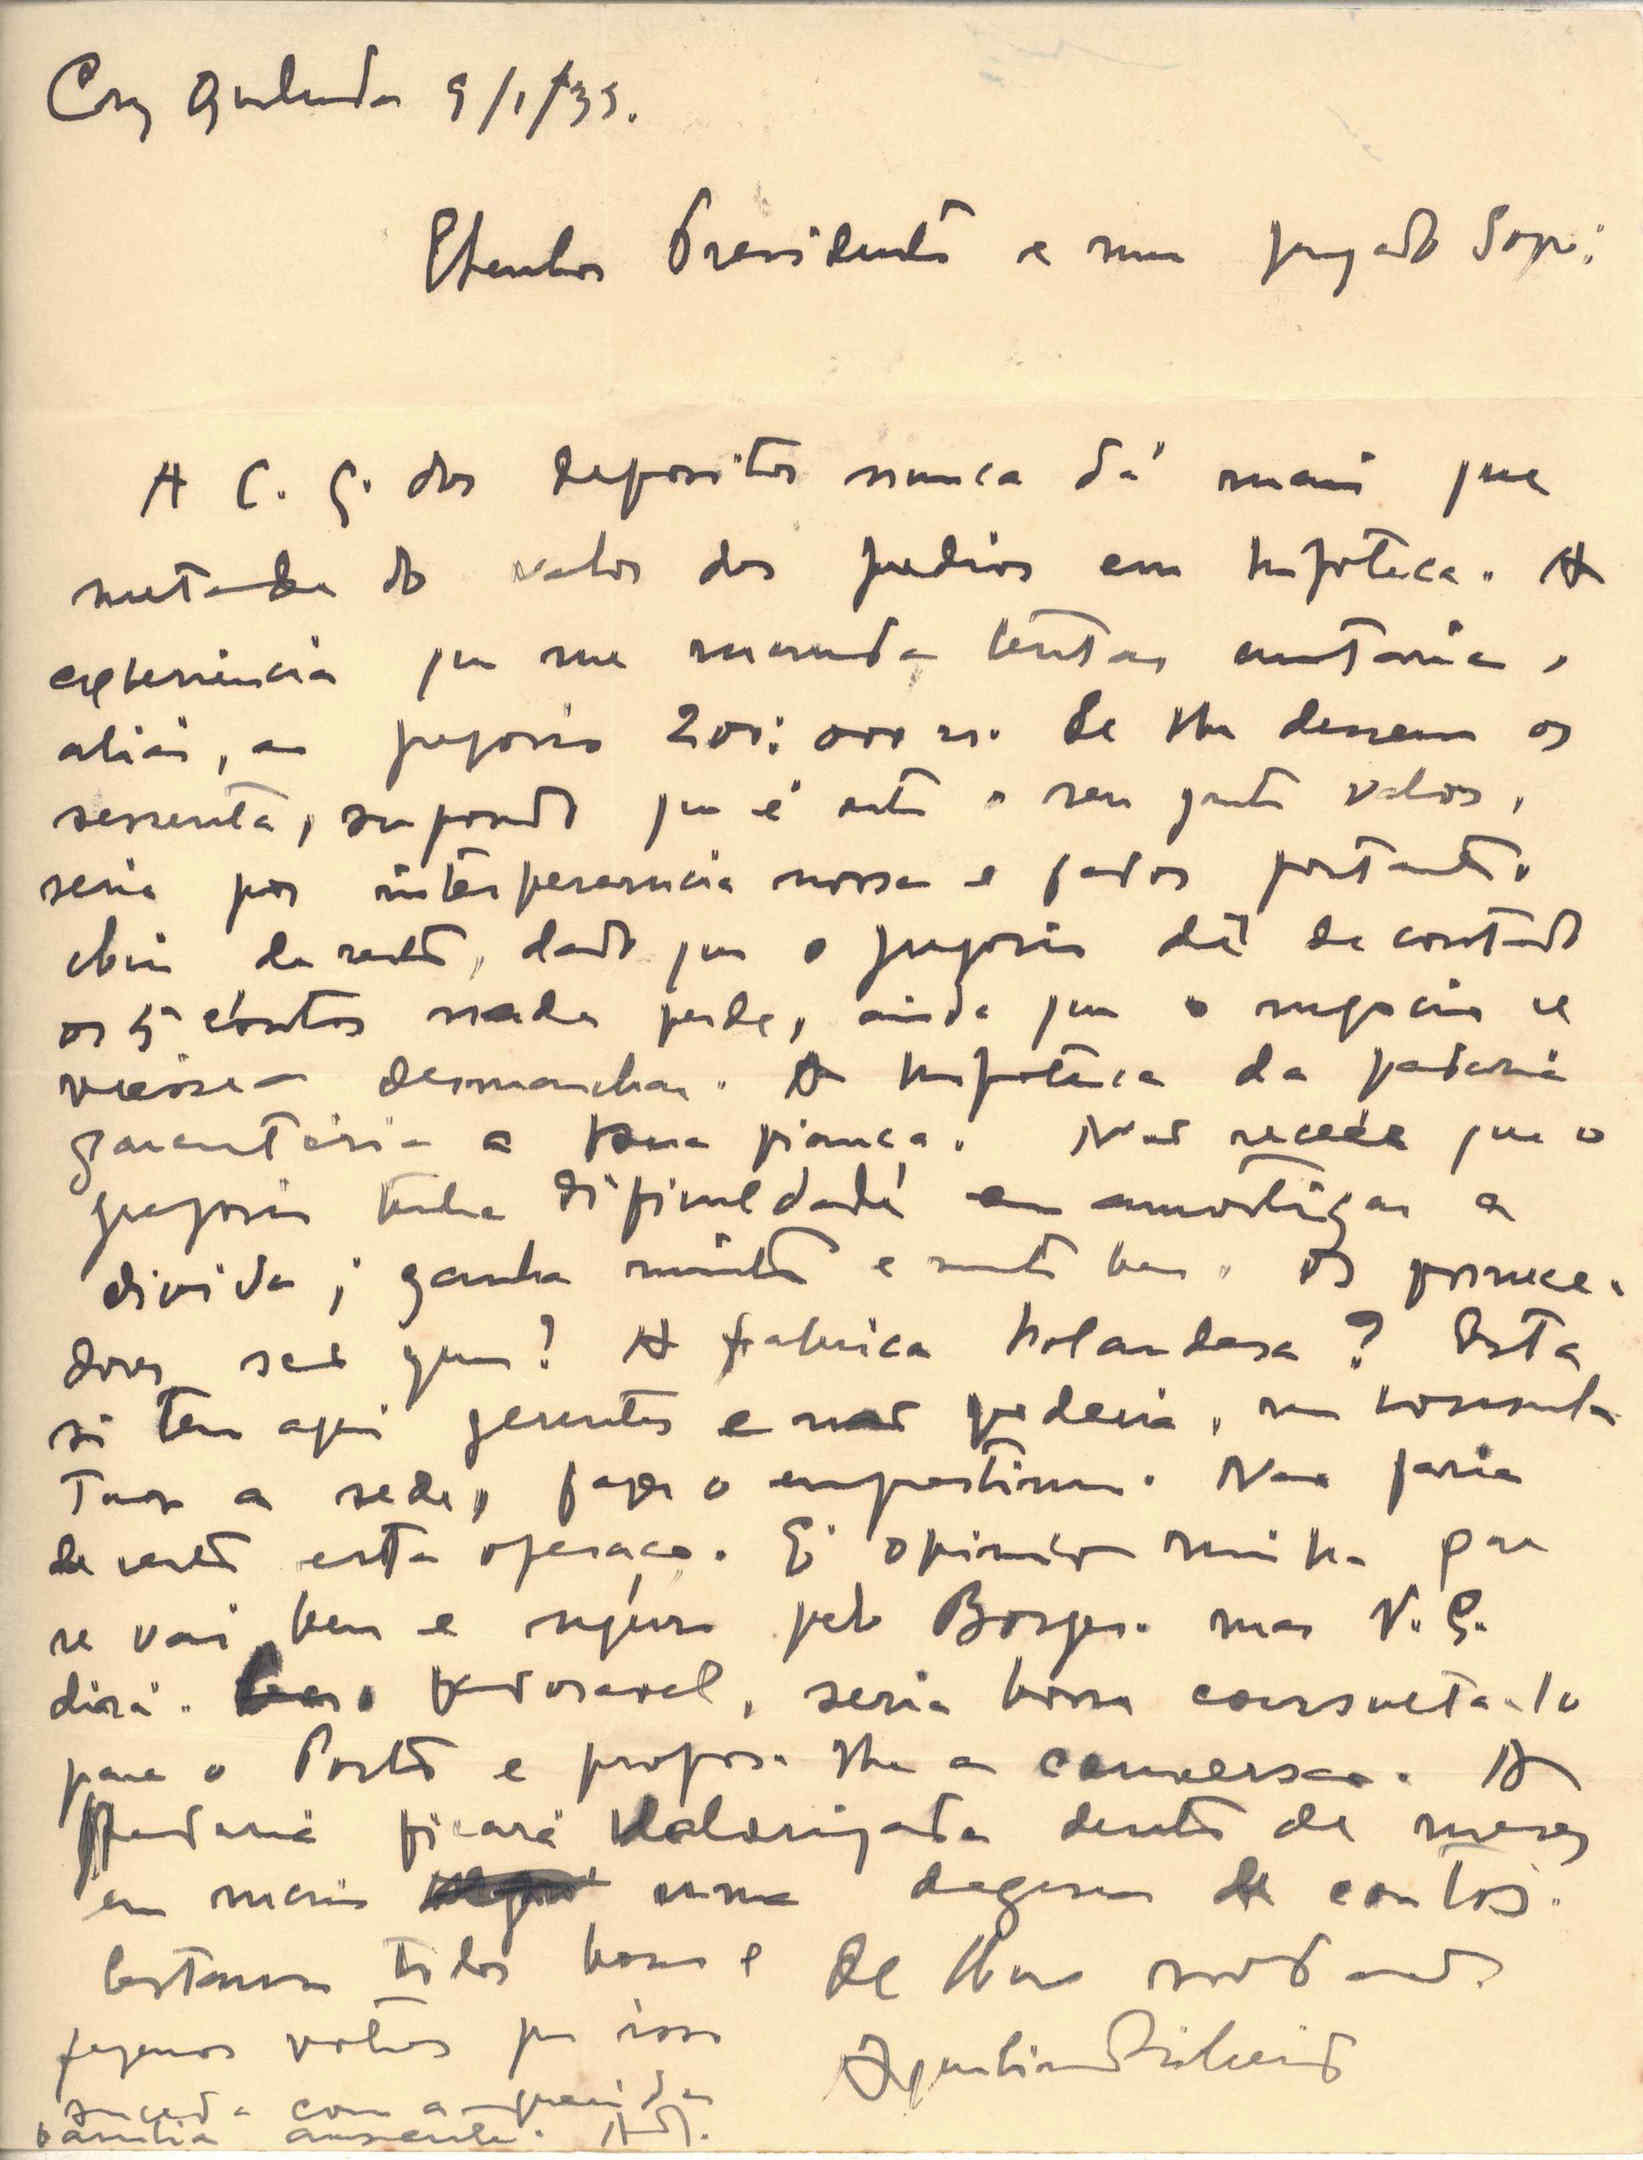 Cruz Quebrada 9/1/35.
Senhor Presidente e meu prezado Sogro:
A C. G. dos depositos nunca dá mais que
metade do valor dos predios em hipoteca. A
experiencia que me manda tentar custaria,
aliás, ao Gregorio 200:000 rs. Se lhe dessem os
sessenta, supondo que é este o seu justo valor,
seria por interferencia nossa e favor portanto.
de resto, dado que o Gregorio dê de contado
os 5 contos nada perde, ainda que o negocio se
viesse a desmanchar. A hipoteca da padaria
garantiria a sua fiança. Não receie que o
Gregorio tenha dificuldade em amortizar a
divida; ganha muito e muito bem. Os fornece-
dores são quem? A fabrica holandesa? Esta
só tem aqui gerentes e não poderia, sem consul-
tar a sede, fazer o emprestimo. Nem faria
de resto esta operação. É opinião minha que
se vai bem e seguro pelo Borges. mas V. E.
dirá. Caso favoravel, seria bom consulta-lo
para o Porto e propor-lhe a conversão. A
Padaria ficará valorizada dentro de meses
em mais uma dezena de contos.
Estamos todos bons e
fazemos votos que isso
suceda com a querida
familia ausente.
De V.
Aquilino Ribeiro